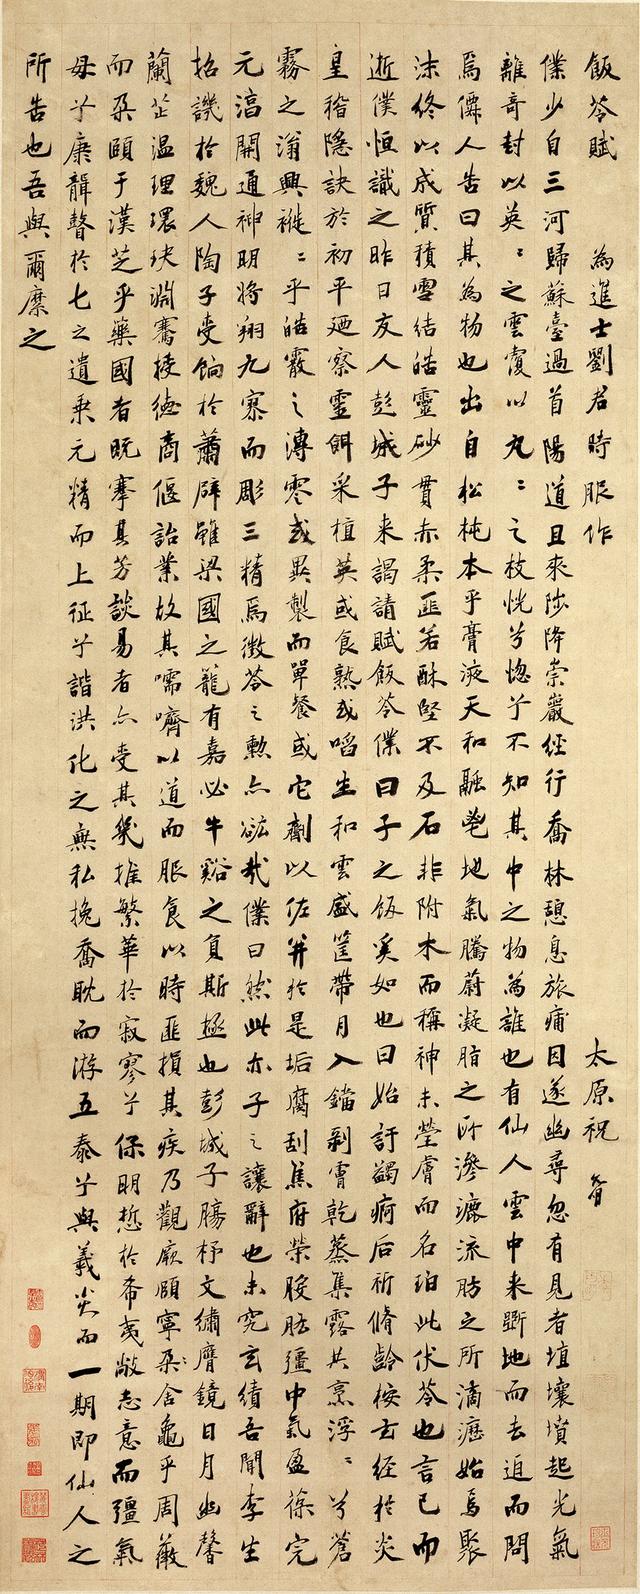 飯苓賦 為進士劉君時服作 太原祝
僕少自三河歸蘇臺過首陽道且來陟降崇巖經行喬林憩息旅痡因遂幽尋忽有見者埴壤墳起光氣
離奇封以英〻之雲覆以丸〻之枝恍兮惚兮不知其中之物為誰也有仙人雲中来斲地而去追而問
焉儒人告曰其為物也出自松杶本乎膏液天和融鬯地氣騰蔚凝脂之所滲漉流肪之所滴瀝始焉聚
沫終以成質積雪結皓靈砂貫赤柔匪若酥堅不及石非附木而稱神未瑩膚而名珀此伏苓也言已而
逝僕恒識之昨日友人彭城子来謁請賦飯苓僕曰子之飯奚如也曰始訏蠲痾后祈脩齡按玄經於炎
皇稽隱訣於初平廼察靈餌采植英或食熟或啗生和雲盛筐帶月入鐺剝膚乾蒸集露共烹浮〻兮蒼
霧之滃興褷〻乎皓霰之漙零或異製而單餐或它劑以佐并於是垢腐刮焦府榮腠肱彊中氣盈葆完
元滀開通神明將翔九寥而彫三精焉徴苓之勲亦紘哉僕曰然此亦子之讓辭也未究玄績吾聞李生
招譏於魏人陶子受餉於蕭辟雖梁國之籠有嘉必牛谿之負斯極也彭城子腸杼文繡膺鏡日月幽馨
蘭芷温理環玦淵騫接德商偃詒業故其嚅嚌以道而服食以時匪損其疾乃觀厥頤寧朵舍龜乎周薇
而朶頤于漢芝乎藥國者既搴其芳談易者亦受其幾推繁華於寂寥兮保明悊於希夷敝志意而彊氣
母兮康韻聲於七之遺乗元精而上征兮諧洪化之無私挽喬耽而游五泰兮與羲炎而一期即仙人之
所告也吾與爾麋之